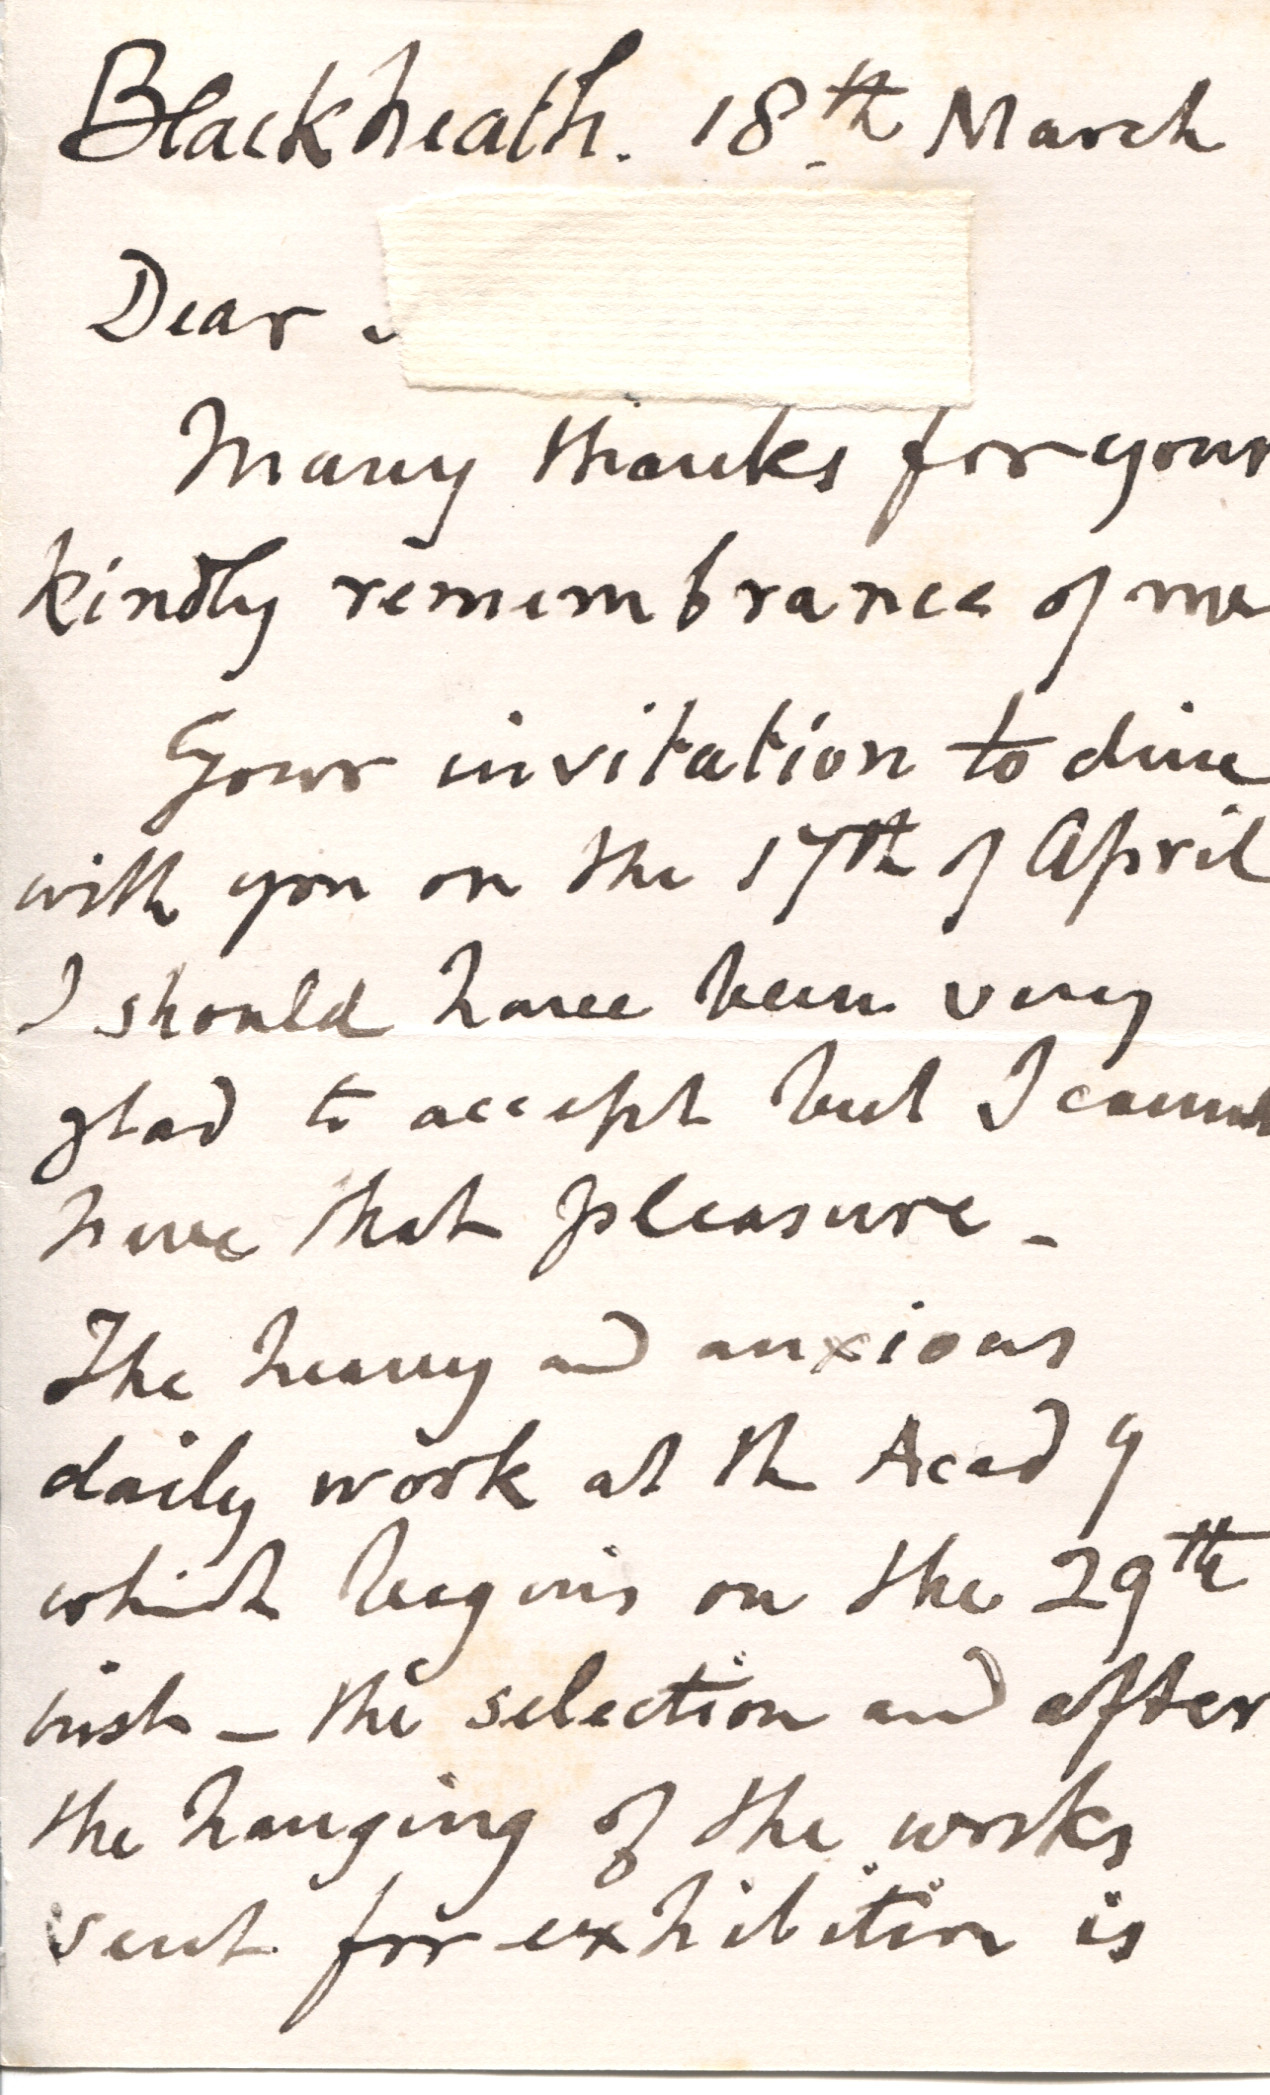 Blackheath. 18th March
Dear
Many thanks for your
kindly remembrance of me
Your invitation to dine
with you on the 17th of April
I should have been very
glad to accept but I cannot
have that pleasure _
The heavy and anxious
daily work at the Acady
which begins on the 29th
inst - the selection and after
the hanging of the works
sent for exhibition is